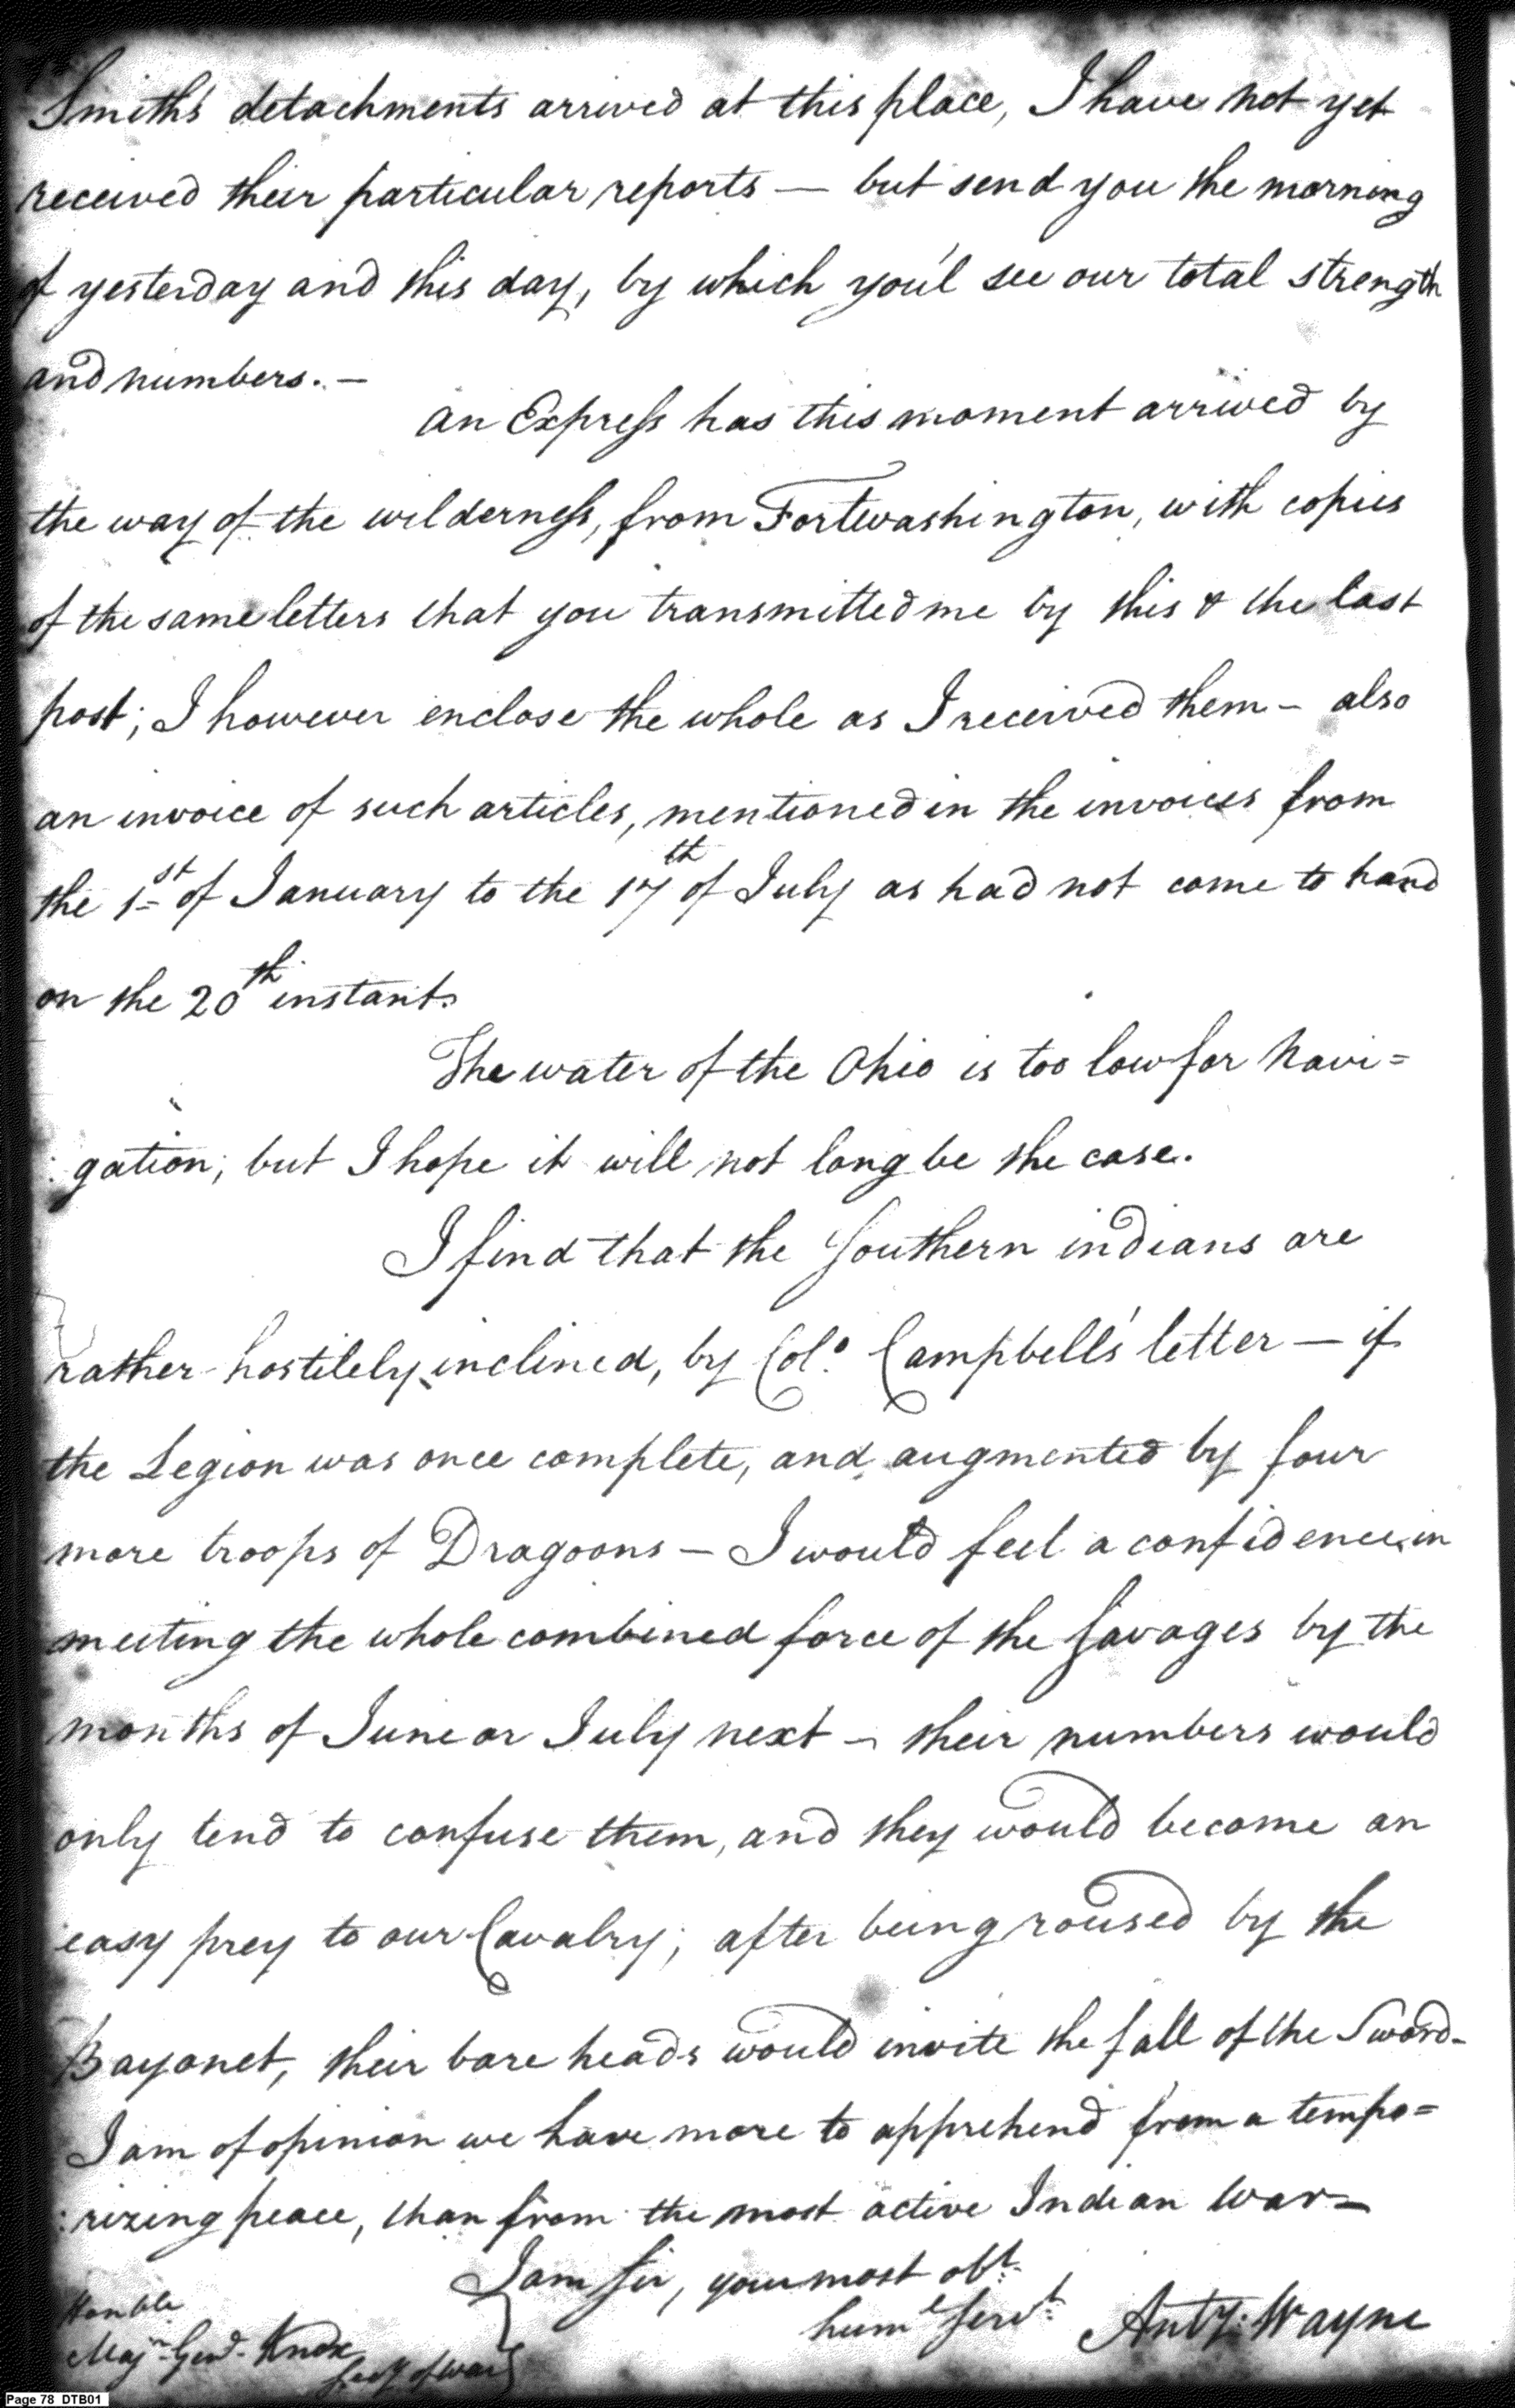 Smith's detachments arrived at this place, I have not yet
received their particular reports — but send you the morning
of yesterday and this day, by which you'l see our total strength
and numbers. —
an Express has this moment arrived by
the way of the wilderness, from Fortwashington, with copies
of the same letters that you transmitted me by this & the last
post; I however enclose the whole as I received them – also
an invoice of such articles, mentioned in the invoices from
the 1st of January to the 17th of July as had not come to hand
on the 20th instant.
The water of the Ohio is too low for Navi=
:gation; but I hope it will not long be the case.
I find that the Southern indians are
rather hostilely inclined, by Colo. Campbell's letter — if
the Legion was once complete, and augmented by four
more troops of Dragoons — I would feel a confidence in
meeting the whole combined force of the Savages by the
months of June or July next – their numbers would
only tend to confuse them, and they would become an
easy prey to our Cavalry; after being roused by the
Bayonet, their bare heads would invite the fall of the Sword–
I am of opinion we have more to apprehend from a tempo=
:rizing peace, than from the most active Indian War–
I am Sir, your most obt.
humle Servt. Anty. Wayne
Honble
Majr. Genl. Knox
Secy of War
Page 78 DTB01